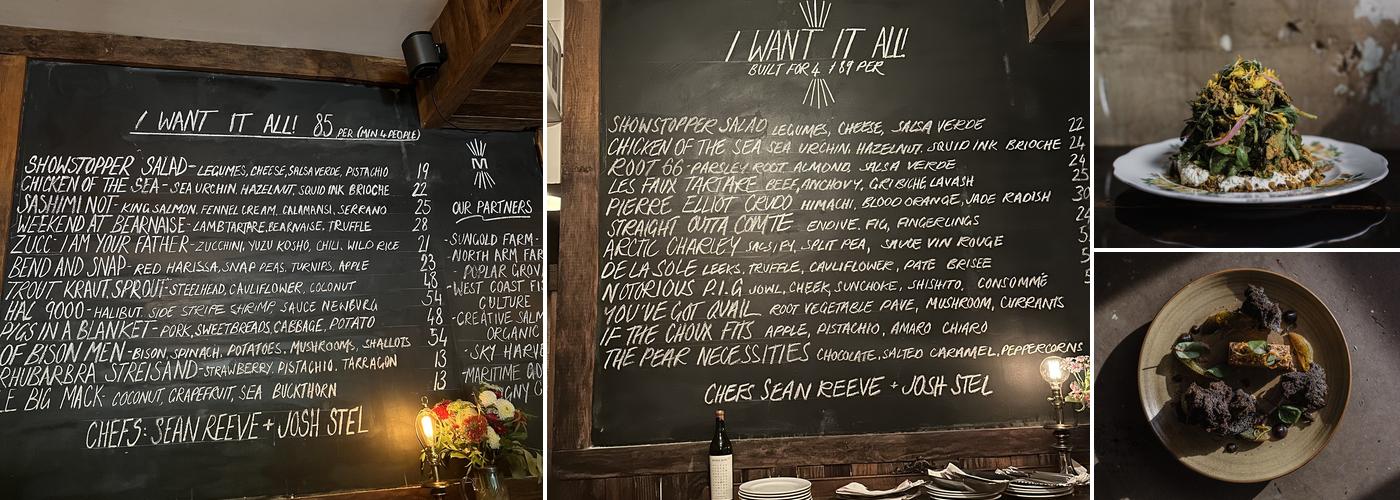 I WANT IT ALL! 85 PER (MIN 4 PEOPLE)
SHOWSTOPPER SALAD - LEGUMES, CHEESE, SALSA VERDE, PISTACHIO 19
CHICKEN OF THE SEA - SEA URCHIN, HAZELNUT, SQUID INK BRIOCHE 22
SASHIMI NOT - KING SALMON, FENNEL CREAM, CALAMANSI, SERRANO 25
WEEKEND AT BEARNAISE - LAMB TARTARE, BEARNAISE, TRUFFLE 28
ZUCC: I AM YOUR FATHER - ZUCCHINI, YUZU KOSHO, CHILI, WILD RICE 21
BEND AND SNAP - RED HARISSA, SNAP PEAS, TURNIPS, APPLE 23
TROUT KRAUT, SPROUT - STEELHEAD, CAULIFLOWER, COCONUT 48
HAL 9000 - HALIBUT, SIDE STRIPE SHRIMP, SAUCE NEWBURG 54
PIGS IN A BLANKET - PORK, SWEETBREADS, CABBAGE, POTATO 48
OF BISON MEN - BISON, SPINACH, POTATOES, MUSHROOMS, SHALLOTS 54
RHUBARBRA STREISAND - STRAWBERRY, PISTACHIO, TARRAGON 13
LE BIG MACK - COCONUT, GRAPEFRUIT, SEA BUCKTHORN 13
CHEFS: SEAN REEVE + JOSH STEL
M
OUR PARTNERS
- SUNGOLD FARM -
- NORTH ARM FAR
- POPLAR GROV
- WEST COAST FIS
CULTURE
- CREATIVE SALM
ORGANIC
- SKY HARVE
- MARITIME
I WANT IT ALL!
BUILT FOR 4 / 89 PER
SHOWSTOPPER SALAD LEGUMES, CHEESE, SALSA VERDE 22
CHICKEN OF THE SEA SEA URCHIN, HAZELNUT, SQUID INK BRIOCHE 24
ROOT 66 - PARSLEY ROOT, ALMOND, SALSA VERDE 24
LES FAUX TARTARE BEEF, ANCHOVY, GRIBICHE LAVASH 25
PIERRE ELLIOT CRUDO HIMACHI, BLOOD ORANGE, JADE RADISH 30
STRAIGHT OUTTA COMTE ENDIVE, FIG, FINGERLINGS 24
ARCTIC CHARLEY SACS, PY, SPLIT PEA, SAUCE VIN ROUGE 5
DE LA SOLE LEEKS, TRUFFLE, CAULIFLOWER, PATE BRISEE
NOTORIOUS P.I.G JOWL, CHEEK, SUNCHOKE, SHISHITO, CONSOMMÉ
YOU'VE GOT QUAIL ROOT VEGETABLE PAVE, MUSHROOM, CURRANTS
IF THE CHOUX FITS APPLE, PISTACHIO, AMARO CHIARO
THE PEAR NECESSITIES CHOCOLATE, SALTED CARAMEL, PEPPERCORNS
CHEFS SEAN REEVE + JOSH STEL